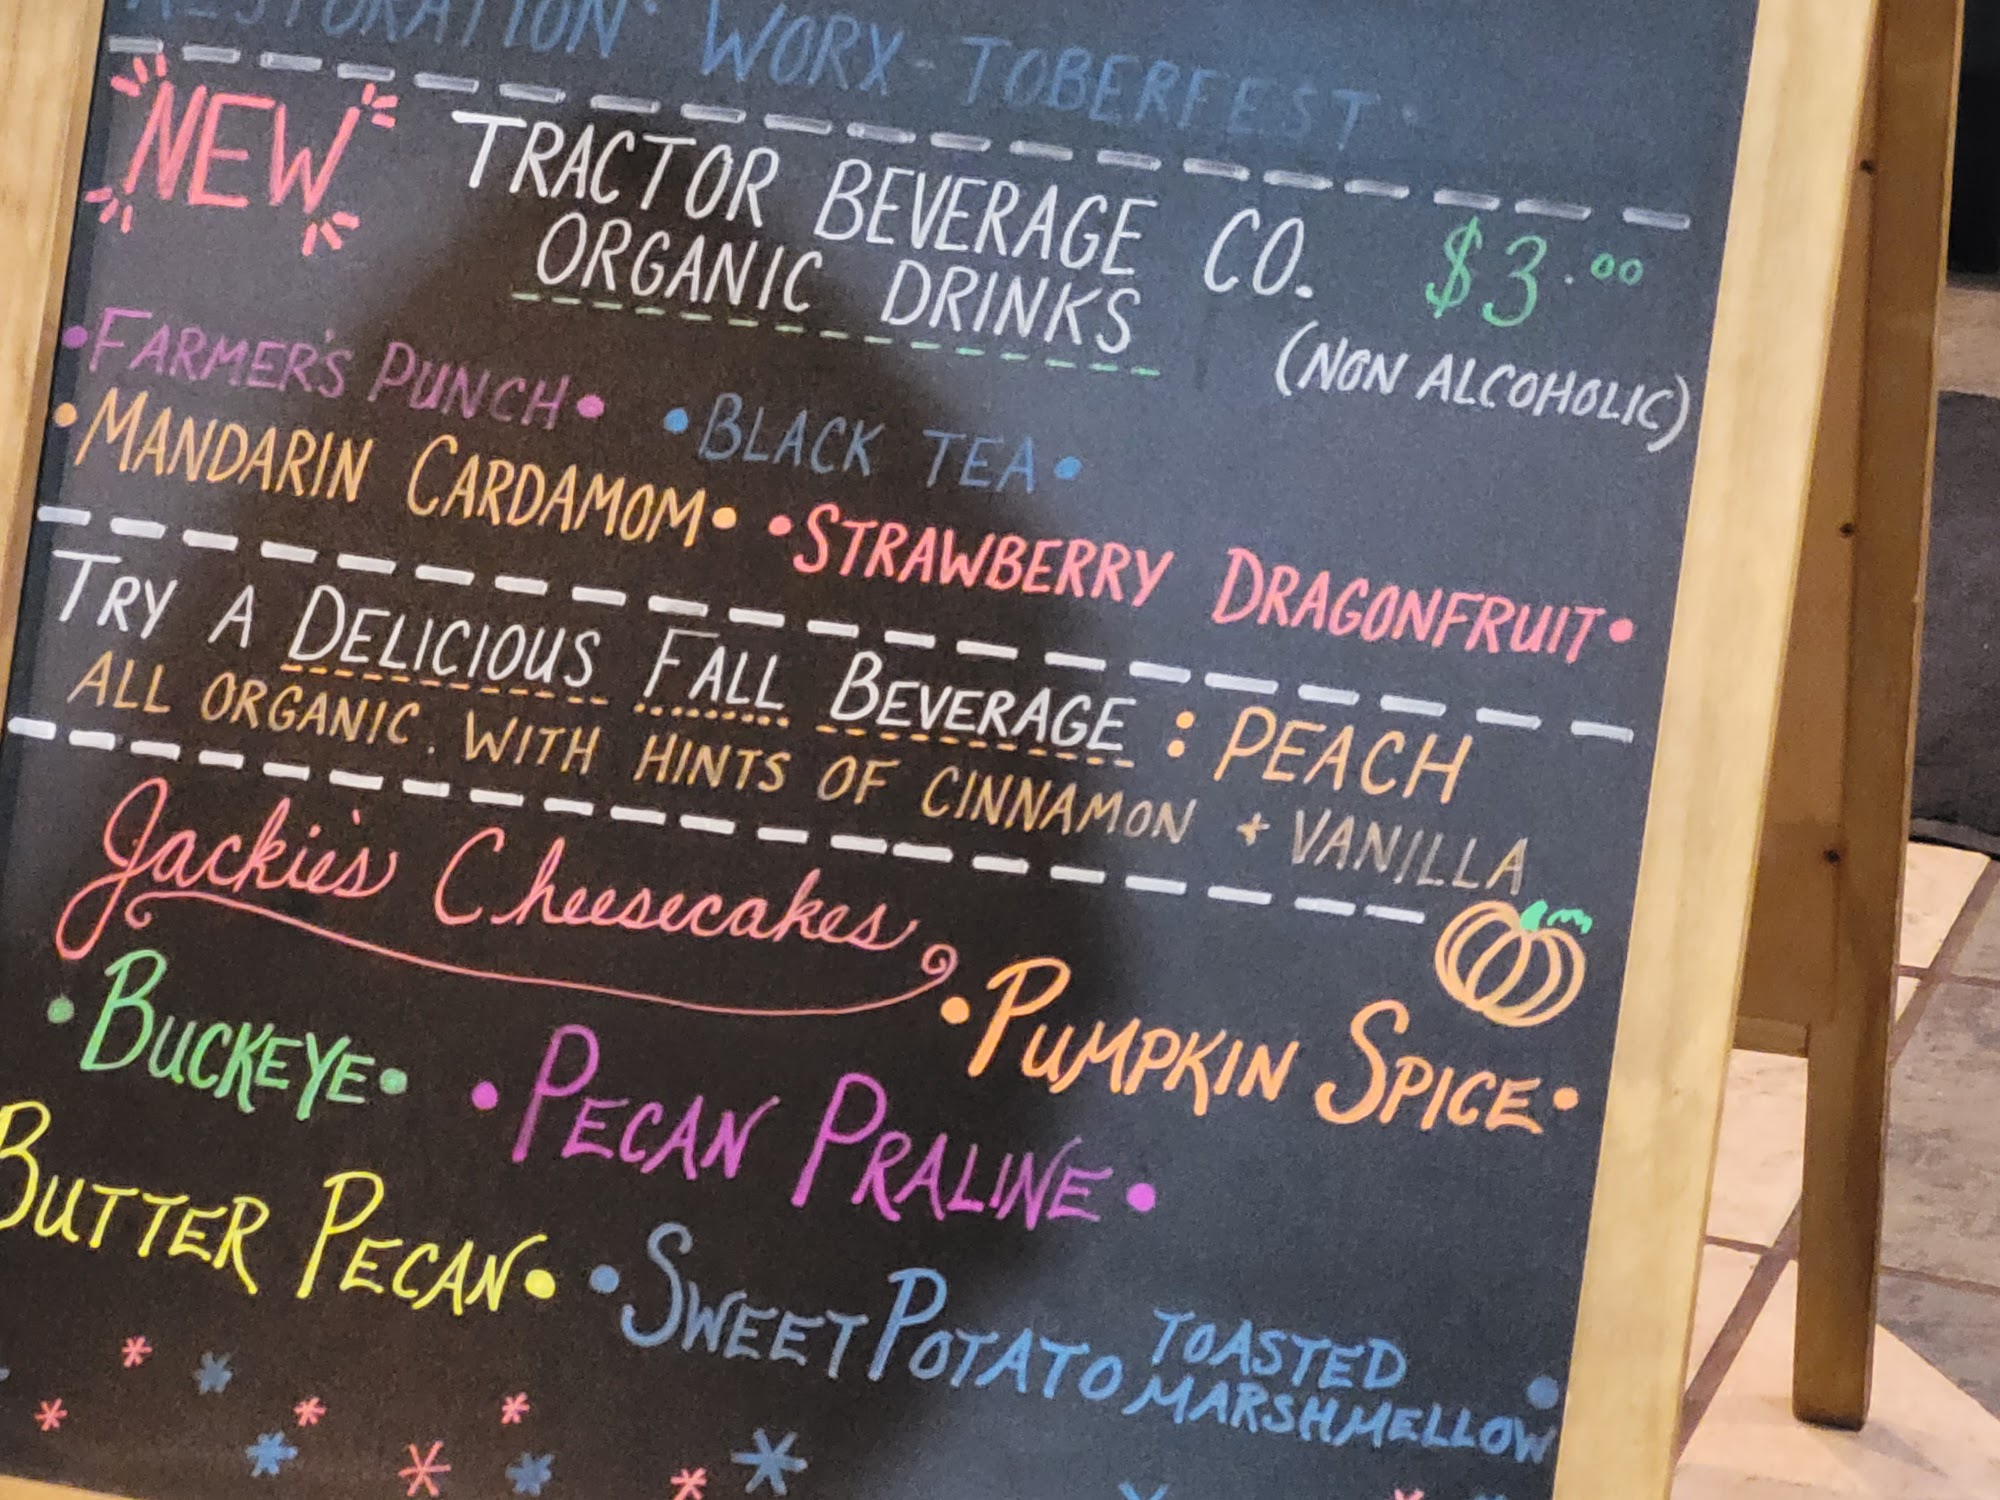 RESTORATION • WORX-TOBERFEST •
NEW TRACTOR BEVERAGE CO. $3.00
ORGANIC DRINKS (NON ALCOHOLIC)
• FARMER'S PUNCH • • BLACK TEA •
• MANDARIN CARDAMOM • • STRAWBERRY DRAGONFRUIT •
TRY A DELICIOUS FALL BEVERAGE : PEACH
ALL ORGANIC. WITH HINTS OF CINNAMON + VANILLA
Jackie's Cheesecakes
• PUMPKIN SPICE •
• BUCKEYE • • PECAN PRALINE •
BUTTER PECAN • • SWEET POTATO TOASTED
MARSHMELLOW •